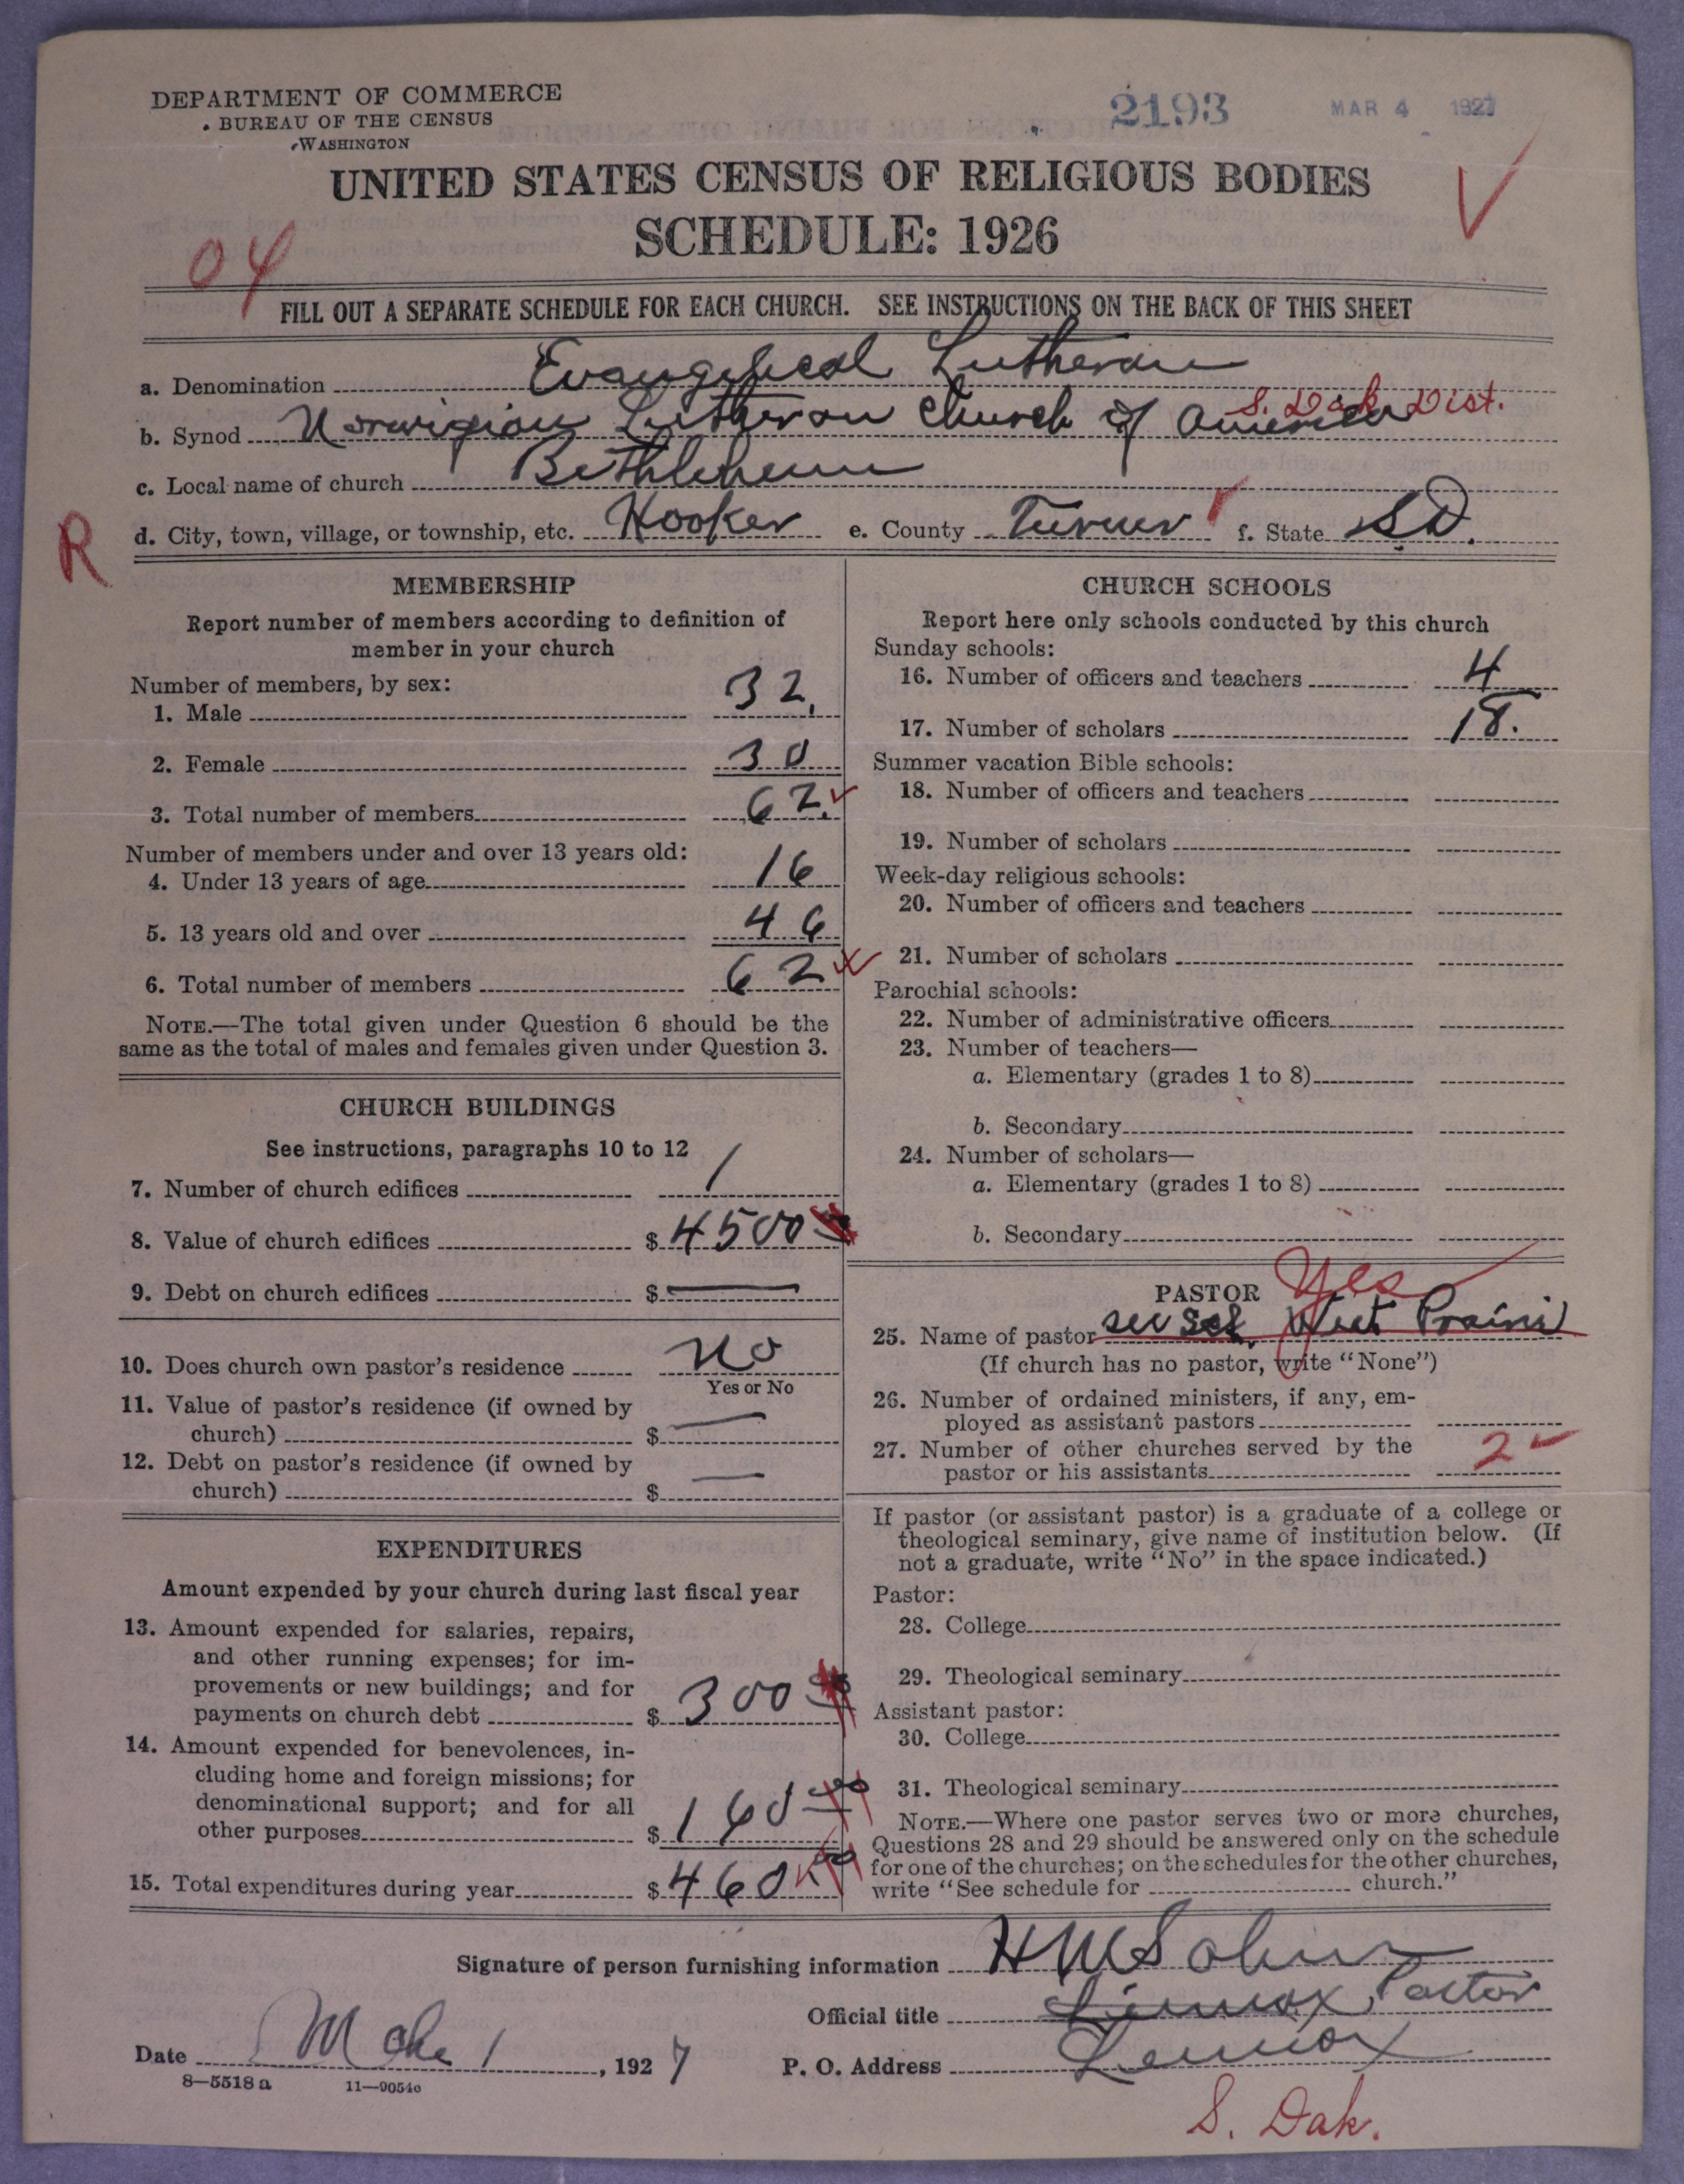 DEPARTMENT OF COMMERCE
BUREAU OF THE CENSUS
WASHINGTON
2193
MAR 4 1927
UNITED STATES CENSUS OF RELIGIOUS BODIES
SCHEDULE: 1926
04
FILL OUT A SEPARATE SCHEDULE FOR EACH CHURCH. SEE INSTRUCTIONS ON THE BACK OF THIS SHEET
a. Denomination Evangelical Lutheran
S. Dak. Dist.
b. Synod Norwigian Lutheran Church of America
c. Local name of church Bethlehem
d. City, town, village, or township, etc. Hooker e. County Turner f. State S.D.
R
MEMBERSHIP
Report number of members according to definition of
member in your church
Number of members, by sex:
1. Male 32.
2. Female 30
3. Total number of members 62.
Number of members under and over 13 years old:
4. Under 13 years of age 16
5. 13 years old and over 46
6. Total number of members 62
NOTE.—The total given under Question 6 should be the
same as the total of males and females given under Question 3.
CHURCH BUILDINGS
See instructions, paragraphs 10 to 12
7. Number of church edifices 1
8. Value of church edifices $ 4500
9. Debt on church edifices $ —
10. Does church own pastor's residence No
Yes or No
11. Value of pastor's residence (if owned by
church) $ —
12. Debt on pastor's residence (if owned by
church) $ —
EXPENDITURES
Amount expended by your church during last fiscal year
13. Amount expended for salaries, repairs,
and other running expenses; for im-
provements or new buildings; and for
payments on church debt $ 300
14. Amount expended for benevolences, in-
cluding home and foreign missions; for
denominational support; and for all
other purposes $ 160
15. Total expenditures during year $ 460
CHURCH SCHOOLS
Report here only schools conducted by this church
Sunday schools:
16. Number of officers and teachers 4
17. Number of scholars 18.
Summer vacation Bible schools:
18. Number of officers and teachers
19. Number of scholars
Week-day religious schools:
20. Number of officers and teachers
21. Number of scholars
Parochial schools:
22. Number of administrative officers
23. Number of teachers—
a. Elementary (grades 1 to 8)
b. Secondary
24. Number of scholars—
a. Elementary (grades 1 to 8)
b. Secondary
PASTOR Yes
25. Name of pastor see Sch. West Prairie
(If church has no pastor, write "None")
26. Number of ordained ministers, if any, em-
ployed as assistant pastors
27. Number of other churches served by the
pastor or his assistants 2
If pastor (or assistant pastor) is a graduate of a college or
theological seminary, give name of institution below. (If
not a graduate, write "No" in the space indicated.)
Pastor:
28. College
29. Theological seminary
Assistant pastor:
30. College
31. Theological seminary
NOTE.—Where one pastor serves two or more churches,
Questions 28 and 29 should be answered only on the schedule
for one of the churches; on the schedules for the other churches,
write "See schedule for church."
Signature of person furnishing information H M
Official title Lennox, Pastor
Date 1, 1927 P. O. Address Lennox
8—5518 a 11—9054c
S. Dak.